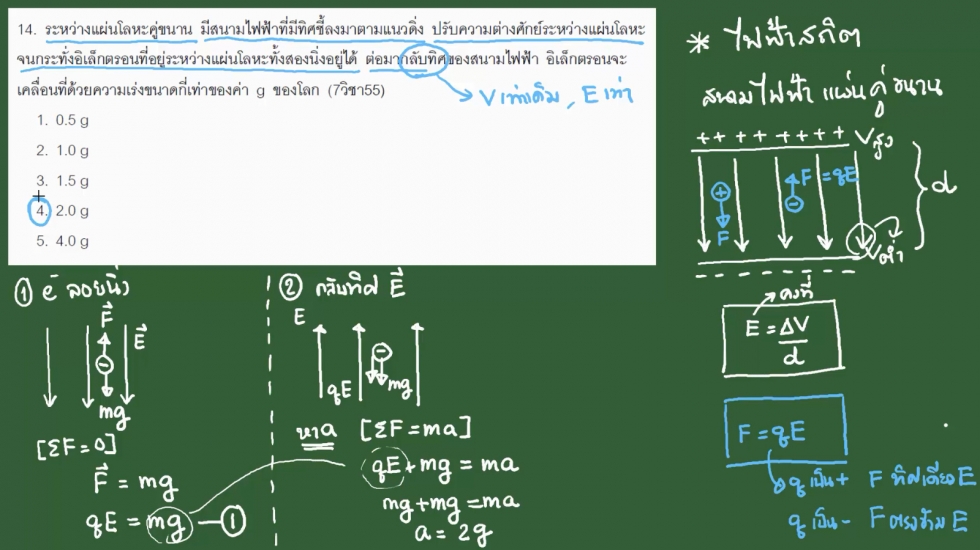 14. ระหว่างแผ่นโลหะคู่ขนาน มีสนามไฟฟ้าที่มีทิศชี้ลงมาตามแนวดิ่ง ปรับความต่างศักย์ระหว่างแผ่นโลหะ
จนกระทั่งอิเล็กตรอนที่อยู่ระหว่างแผ่นโลหะทั้งสองนิ่งอยู่ได้ ต่อมากลับทิศของสนามไฟฟ้า อิเล็กตรอนจะ
เคลื่อนที่ด้วยความเร่งขนาดกี่เท่าของค่า g ของโลก (7วิชา55)
V เท่าเดิม, E เท่า
1. 0.5 g
2. 1.0 g
3. 1.5 g
4. 2.0 g
5. 4.0 g
* ไฟฟ้าสถิต
สนามไฟฟ้า แผ่นคู่ขนาน
++ ++ ++++ V สูง
+ − F = qE
F
d
V ต่ำ
คงที่
E = ΔV
d
F = qE
q เป็น + F ทิศเดียว E
q เป็น - F ตรงข้าม E
① e⁻ ลอยนิ่ง
F⃗
E⃗
−
mg
[ΣF = 0]
F⃗ = mg
qE = mg —①
② กลับทิศ E⃗
E
−
qE mg
หา a [ΣF = ma]
qE + mg = ma
mg + mg = ma
a = 2g